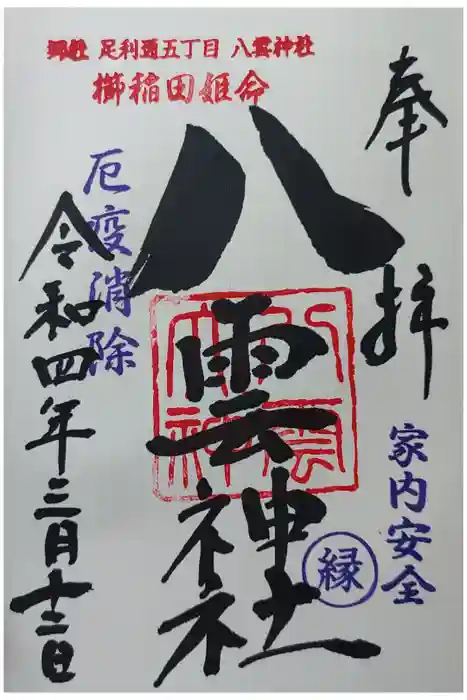 郷社 足利通五丁目 八雲神社
櫛稲田姫命
奉拝
八雲神社
八雲神社
家内安全
縁
厄変消除
令和四年三月十二日